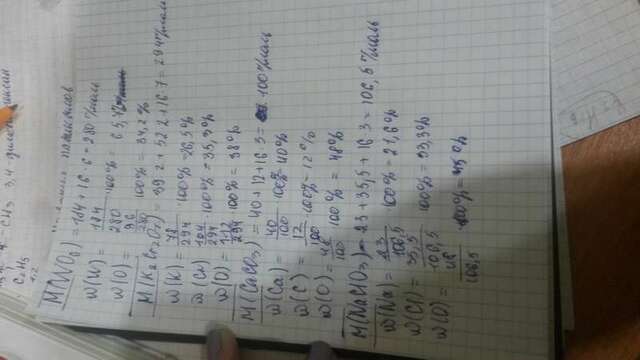 CH3 3,4
C2H5
M(WO6) = 184 + 16·6 = 280 г/моль
w(W) = 184/280 · 100% = 65,7%
w(O) = 96/280 · 100% = 34,2%
M(K2Cr2O7) = 39·2 + 52·2 + 16·7 = 294 г/моль
w(K) = 78/294 · 100% = 26,5%
w(Cr) = 104/294 · 100% = 35,3%
w(O) = 112/294 · 100% = 38%
M(CaCO3) = 40 + 12 + 16·3 = 100 г/моль
w(Ca) = 40/100 · 100% = 40%
w(C) = 12/100 · 100% = 12%
w(O) = 48/100 · 100% = 48%
23 + 35,5 + 16·3 = 106,5 г/моль
w(Na) = 23/106,5 · 100% = 21,6%
w(Cl) = 35,5/106,5 · 100% = 33,3%
w(O) = 48/106,5 · 100% = 45%